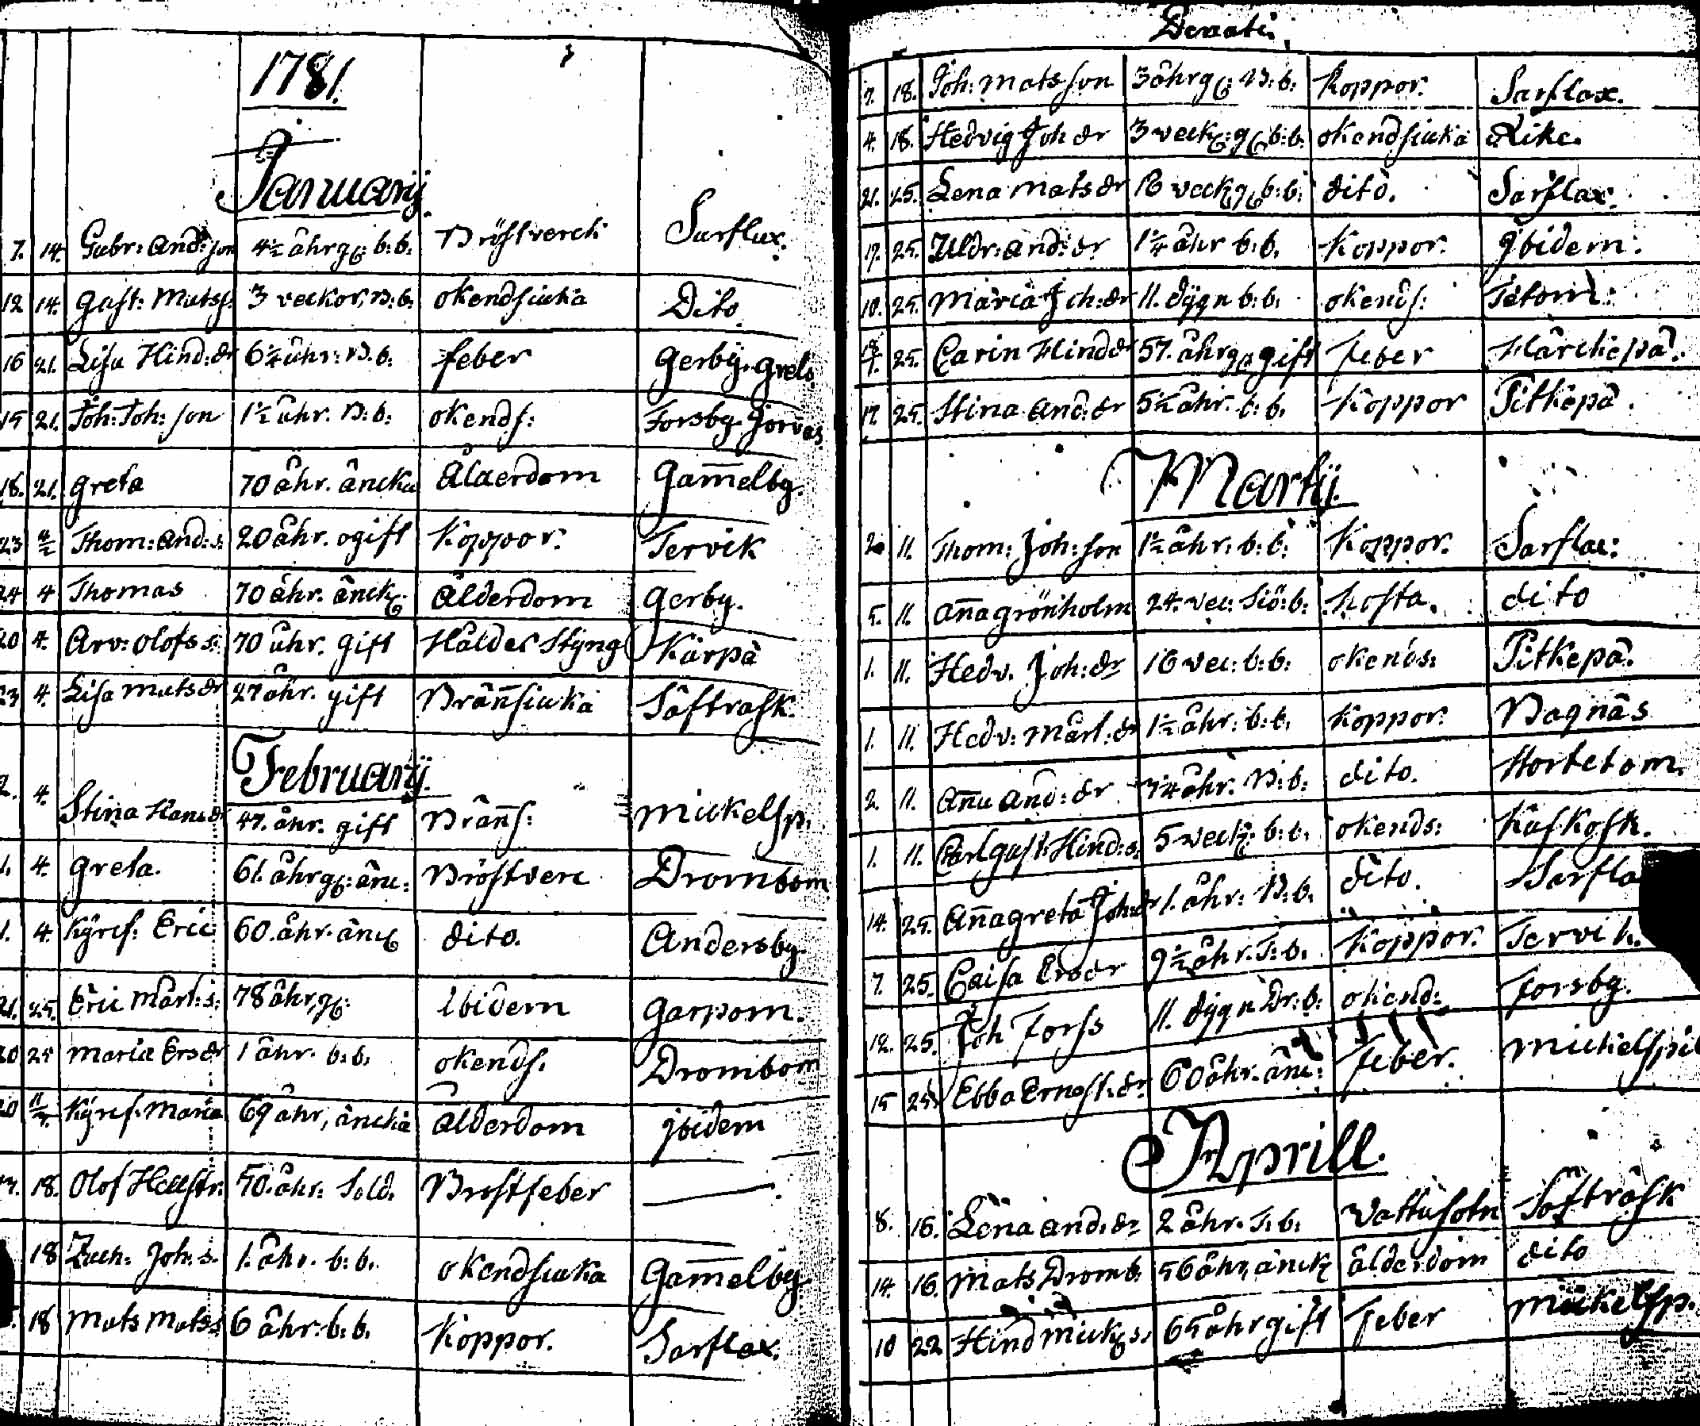 1781.
Januarij.
7. 14. Gabr: And:son 4½ åhrg. b:b. Bröstverck Sarflax.
12 14. Gust: Matss: 3 veckor, B:b. okendsiuka Dito
16 21. Lisa Hind:dr 6¼ åhr: B.b. feber Gerby. Grels
15 21. Joh: Joh: son 1½ åhr. B:b: okends: Forsby
18. 21. Greta 70 åhr. äncka ålderdom Gam̄elby.
23 Thom: And:s: 20 åhr. ogift Koppor. Tervik
24 4 Thomas 70 åhr. änck. ålderdom Gerby.
20 4. Arv: Olofs s: 70 åhr. gift Håld el Styng Kärpä
23 4. Lisa Mats dr 27 åhr. gift Brän̄siuka Säftrask.
Februarij.
2. 4. Stina Hansdr 47. åhr. gift Brän̄s: Mickelsp.
1. 4. Greta. 61. åhrg. änc: Bröstverc Drombom
1. 4. Kyrcf. Eric 60. åhr. änc dito. Andersby
21. 25. Eric Mårt:s: 78 åhrg. Ibidem Garpom.
20 25 Maria Ersdr 1 åhr. b:b. okends. Drombom
20 Kyrcf. Maria 69 åhr, äncka ålderdom jbidem
18. Olof Hellstr. 50. åhr. Sold. Brostfeber
18 Zach: Joh: s. 1. åhr. b:b. okendsiuka Gam̄elby
18 Mats Matss 6 åhr: b:b. Koppor. Sarflax.
Denati.
7. 18. Joh: Matsson 3 åhrg. B:b. Koppor. Sarflax.
4. 18. Hedvig Joh dr 3 veck: g. b:b. okendsiuka Rike.
21. 25. Lena Mats dr 16 veck g. b:b. dito. Sarflax.
17. 25. Uldr: And: dr 1¼ åhr b:b. Koppor. jbidem.
10. 25. Maria Joh: dr 11. dygn b:b. okends: Tetom:
25. Carin Hinddr 57. åhrg. gift feber Härckepä.
17. 25. Stina And: dr 5½ åhr. b:b. Koppor Pitkepä.
Martij.
2. 11. Thom: Joh: son 1½ åhr: b:b: Koppor. Sarflax:
5. 11. An̄a Grönholm 24. vec: Siö:b: hosta. dito
1. 11. Hedv. Joh: dr 16 vec: b:b. okends: Pitkepä.
1. 11. Hedv: Mårt: dr 1½ åhr: b:b. Koppor. Bagnäs
2. 11. An̄a And: dr 7¼ åhr. B:b. dito. Hortetom.
1. 11. Carl Gust: Hind:s. 5 veck: b:b. okends: Kuskosk.
14. 25. An̄a Greta Joh:dr 1. åhr. B.b. dito. Sarfla
7. 25. Caisa Ersdr 9½ åhr. T:b. Koppor. Tervik.
12. 25. Joh Forss 11. dygn Dr:b. okend: Forsby.
15 25. Ebba Ernst:dr 60 åhr. änc: Feber. Mickelspil
Aprill.
8. 16. Lena And:dr 2 åhr. T:b. Vattusotn Söfträsk
14. 16. Mats Dromb. 56 åhr, änck ålderdom dito
10 22 Hind Mick s. 65 åhr gift Feber Mickelsp.